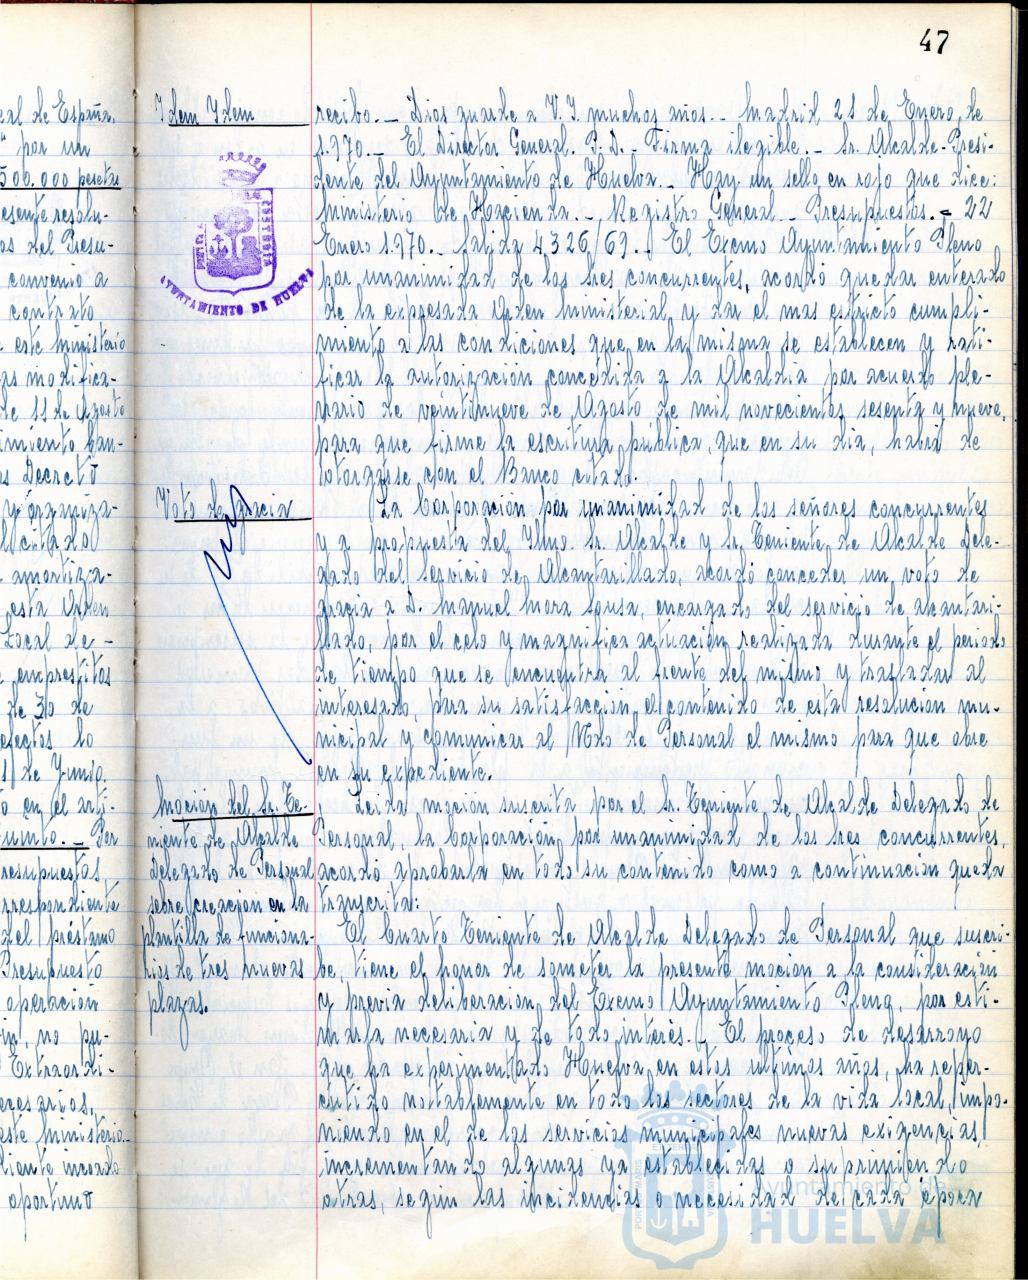 47
eal de España,
" por un
500.000 pesetas
esente resolu-
os del Presu-
convenio a
contrato
este Ministerio
as modifica-
de 11 de Agosto
amiento
as Decreto
y organiza-
citado
amortiza-
esta Orden
Local de-
empréstitos
de 30 de
efectos lo
de Junio,
o en el artí-
Por
resupuestos
rrespondiente
del préstamo
Presupuesto
operación
no pu-
Extraordi-
ecesarios,
este Ministerio
diente incoado
oportuno
Idem Idem
AYUNTAMIENTO DE HUELVA
Voto de gracia
Moción del Sr. Te-
niente de Alcalde
Delegado de Personal
sobre creación en la
plantilla de funciona-
rios de tres nuevas
plazas.
recibo.- Dios guarde a V.I. muchos años.- Madrid 21 de Enero, de
1.970.- El Director General. P.D.- Firma ilegible.- Sr. Alcalde-Presi-
dente del Ayuntamiento de Huelva.- Hay un sello en rojo que dice:
Ministerio de Hacienda.- Registro General.- Presupuestos.- 22
Enero 1.970.- Salida 4326/69.- El Excmo Ayuntamiento Pleno
por unanimidad de los tres concurrentes, acordó quedar enterado
de la expresada Orden ministerial y dar el mas estricto cumpli-
miento a las condiciones que en la misma se establecen y rati-
ficar la autorización concedida a la Alcaldia por acuerdo ple-
nario de veintinueve de Agosto de mil novecientos sesenta y nueve,
para que firme la escritura pública, que en su dia, habrá de
otorgarse con el Banco citado.
La Corporación por unanimidad de los señores concurrentes
y a propuesta del Iltmo. Sr. Alcalde y Sr. Teniente de Alcalde Dele-
gado del Servicio de Alcantarillado, acordó conceder un voto de
gracia a D. Manuel Mora Sousa, encargado del servicio de alcantari-
llado, por el celo y magnifica actuación realizada durante el periodo
de tiempo que se encuentra al frente del mismo y trasladar al
interesado, para su satisfacción, el contenido de esta resolución mu-
nicipal y comunicar al Ngdo de Personal el mismo para que obre
en su expediente.
Leida moción suscrita por el Sr. Teniente de Alcalde Delegado de
Personal, la Corporación, por unanimidad de los tres concurrentes,
acordó aprobarla en todo su contenido como a continuación queda
transcrita:
El Cuarto Teniente de Alcalde Delegado de Personal que suscri-
be, tiene el honor de someter la presente moción a la consideración
y previa deliberación del Excmo Ayuntamiento Pleno, por esti-
marla necesaria y de todo interés.- El proceso de desarroyo
que ha experimentado Huelva en estos ultimos años, ha reper-
cutido notablemente en todo los sectores de la vida local, impo-
niendo en el de los servicios municipales nuevas exigencias,
incrementando algunas ya establecidas o suprimiendo
otras, segun las incidencias o necesidad de cada época
Ayuntamiento de
HUELVA